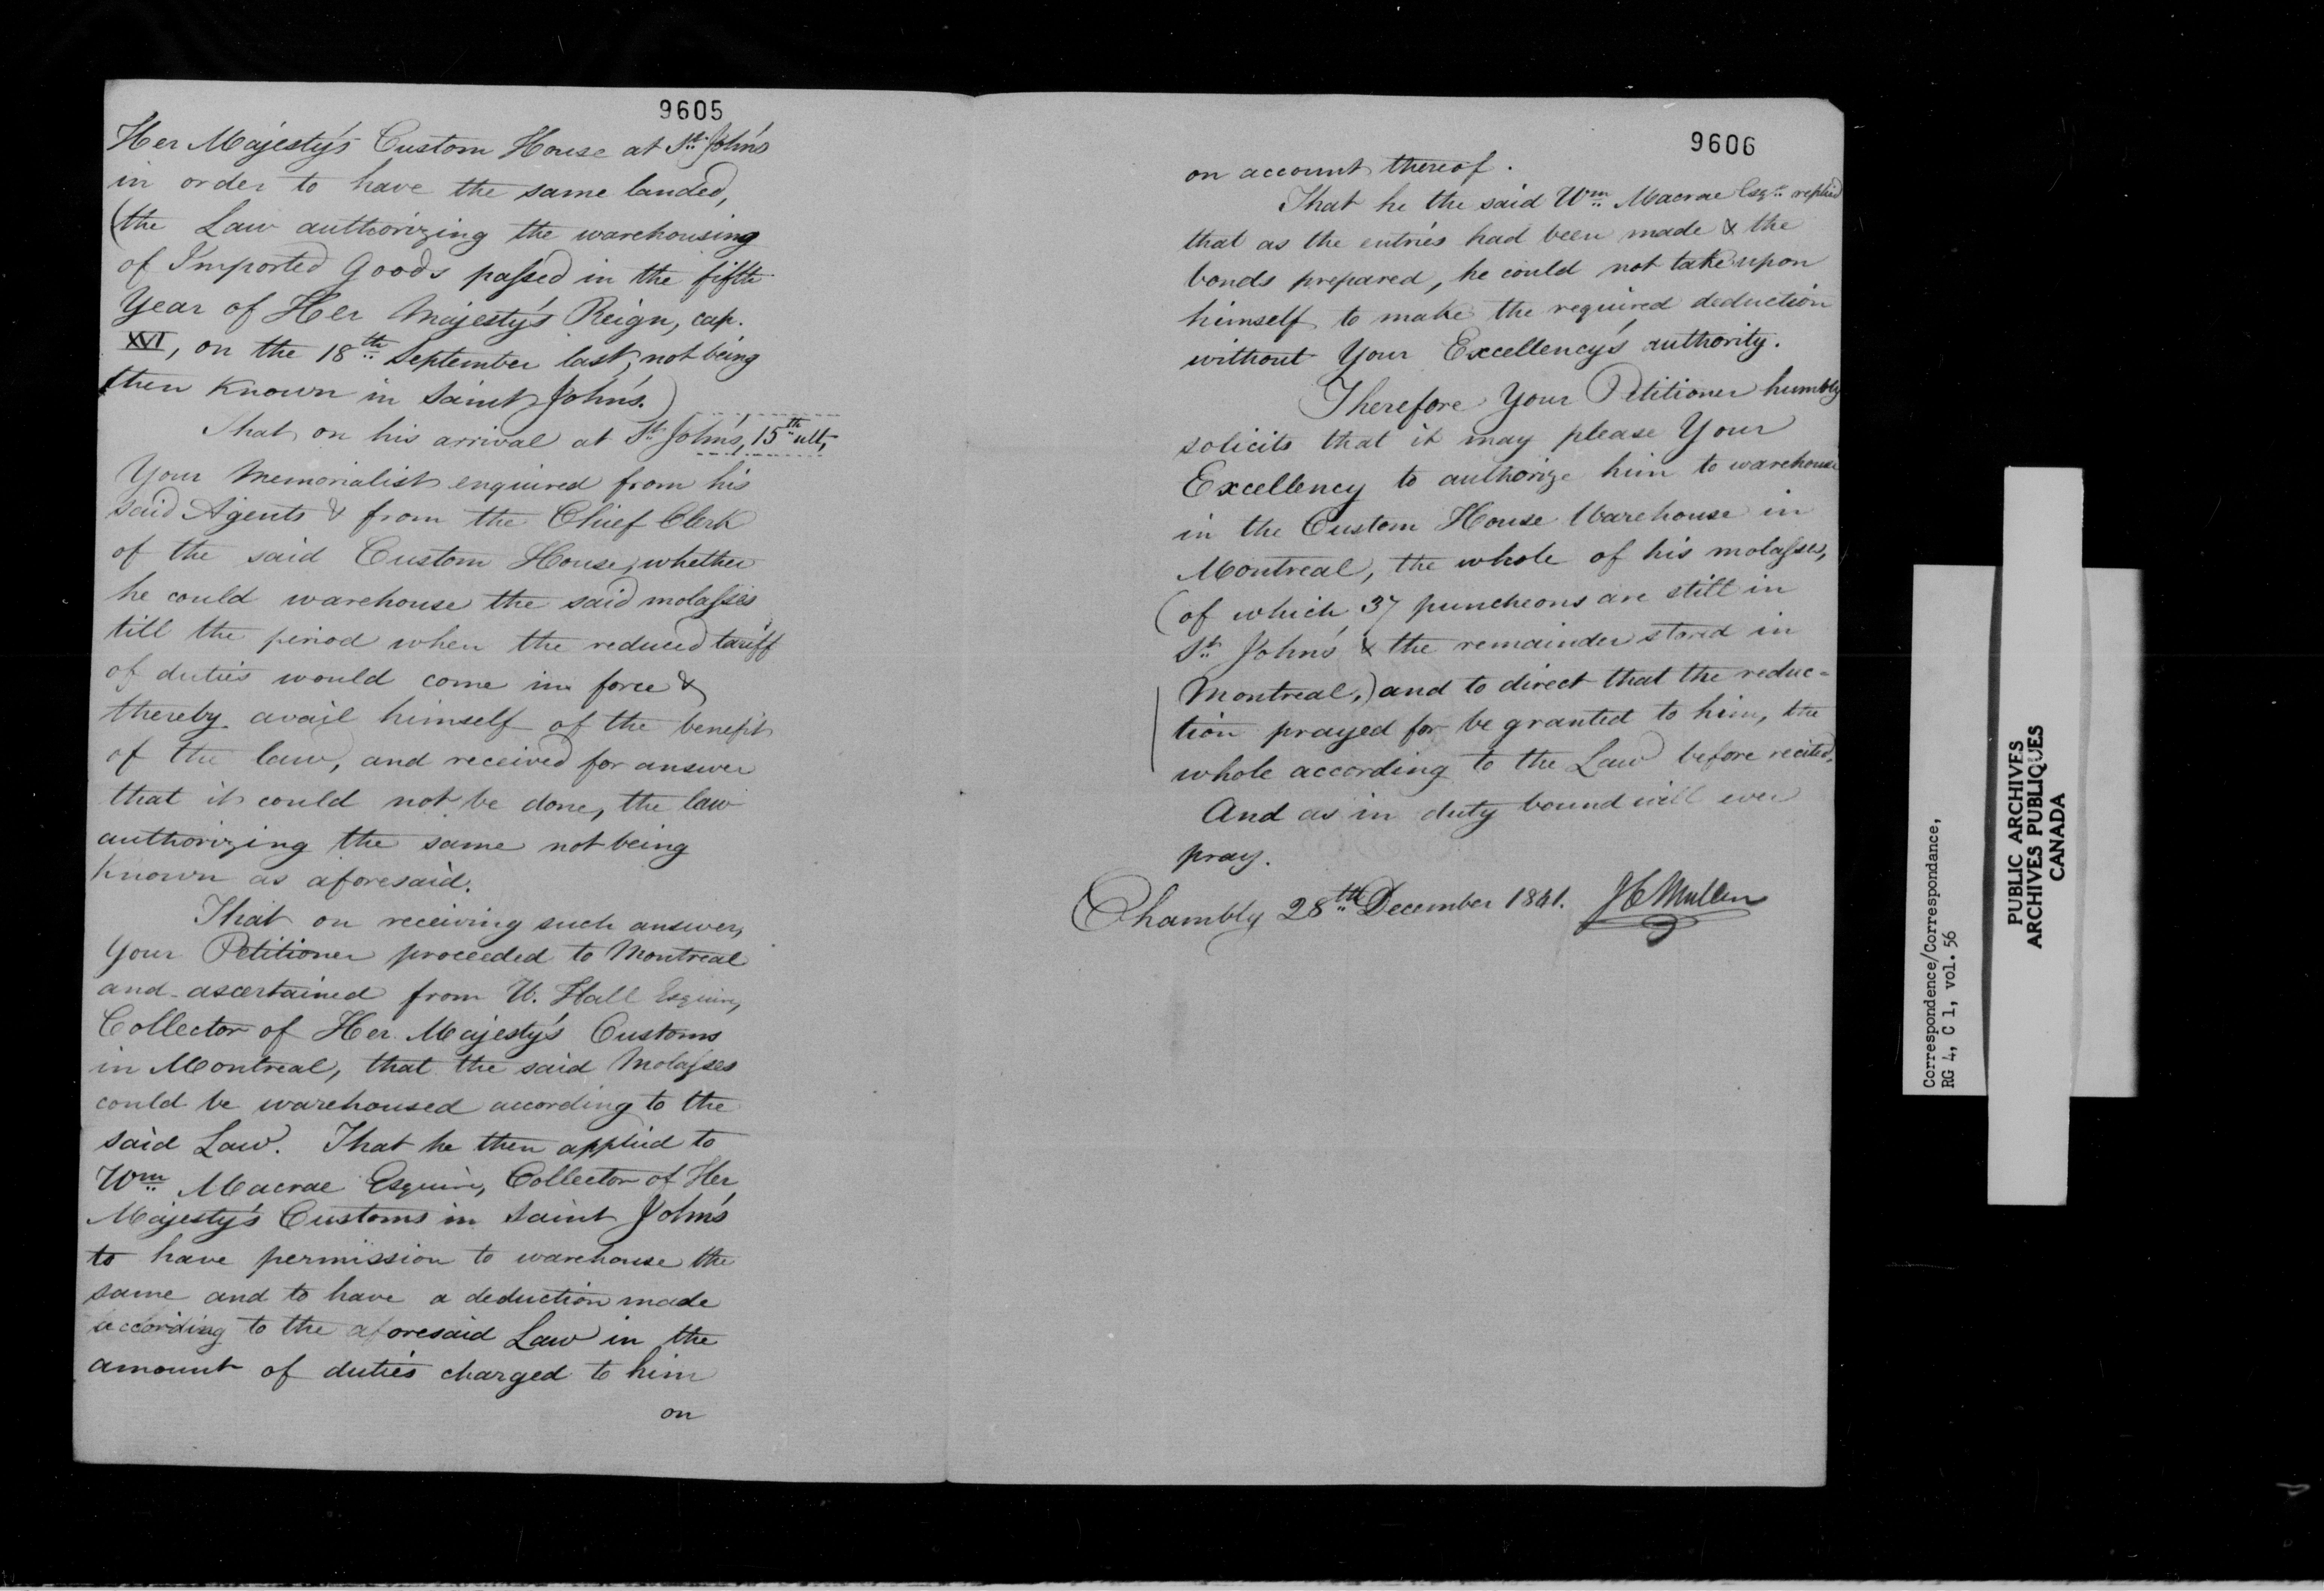 9605
Her Majesty's Custom House at St. John's
in order to have the same landed,
(the Law authorizing the warehousing
of Imported Goods passed in the fifth
Year of Her Majesty's Reign, cap.
XVI, on the 18th September last, not being
then known in Saint John's.)
That on his arrival at St. John's, 15th ult,
Your Memorialist enquired from his
said Agents & from the Chief Clerk
of the said Custom House, whether
he could warehouse the said molasses
till the period when the reduced tariff
of duties would come in force &
thereby avail himself of the benefit
of the law, and received for answer
that it could not be done, the law
authorizing the same not being
known as aforesaid.
That on receiving such answer,
Your Petitioner proceeded to Montreal
and ascertained from W. Hall Esquire,
Collector of Her Majesty's Customs
in Montreal, that the said Molasses
could be warehoused according to the
said Law. That he then applied to
Wm Macrae Esquire, Collector of Her
Majesty's Customs in Saint John's
to have permission to warehouse the
same and to have a deduction made
according to the aforesaid Law in the
amount of duties charged to him
on
9606
on account thereof.
That he the said Wm Macrae Esqre replied
that as the entries had been made & the
bonds prepared, he could not take upon
himself to make the required deduction
without Your Excellency's authority.
Therefore Your Petitioner humbly
solicits that it may please Your
Excellency to authorize him to warehouse
in the Custom House Warehouse in
Montreal, the whole of his molasses,
(of which 37 puncheons are still in
St. John's & the remainder stored in
Montreal,) and to direct that the reduc=
tion prayed for be granted to him, the
whole according to the Law before recited.
And as in duty bound will ever
pray.
Chambly 28th December 1841. J C Mullen
Correspondence/Correspondance,
RG 4, C 1, vol. 56
PUBLIC ARCHIVES
ARCHIVES PUBLIQUES
CANADA